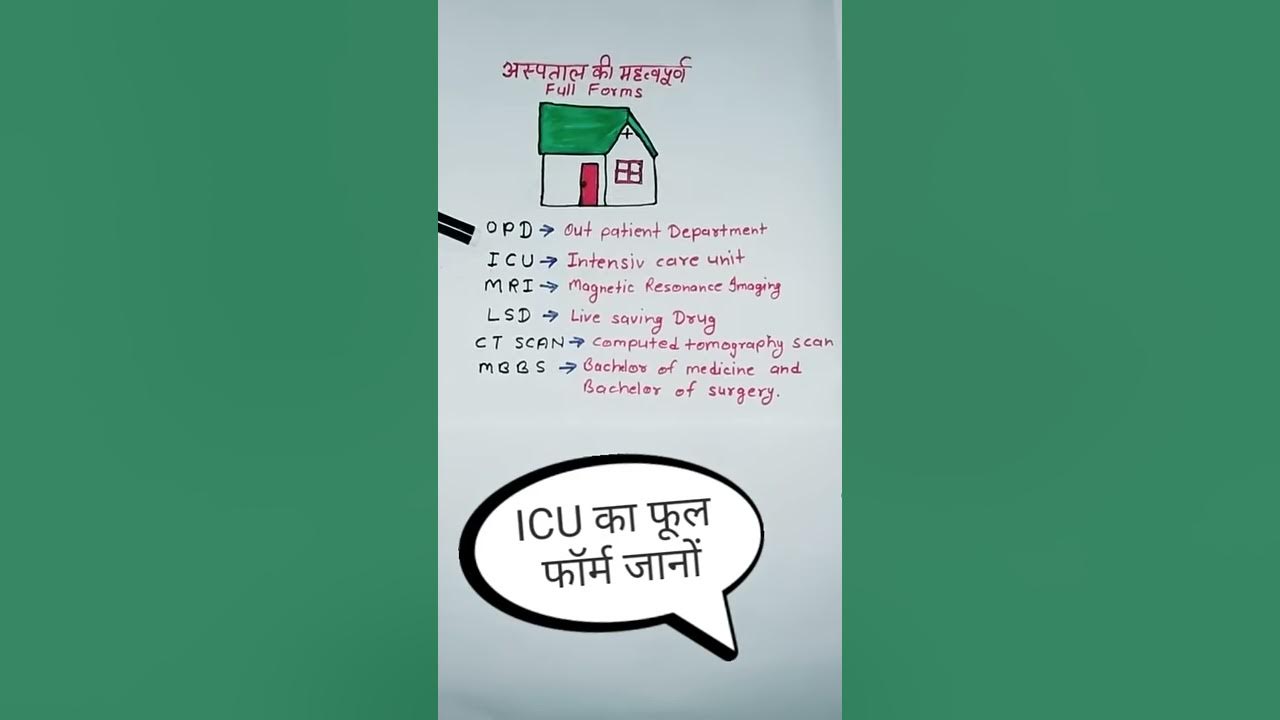 अस्पताल की महत्वपूर्ण
Full Forms
OPD → Out patient Department
ICU → Intensiv care unit
MRI → Magnetic Resonance Imaging
LSD → Live saving Drug
CT SCAN → Computed tomography scan
MBBS → Bachelor of medicine and
Bachelor of surgery.
ICU का फूल
फॉर्म जानों